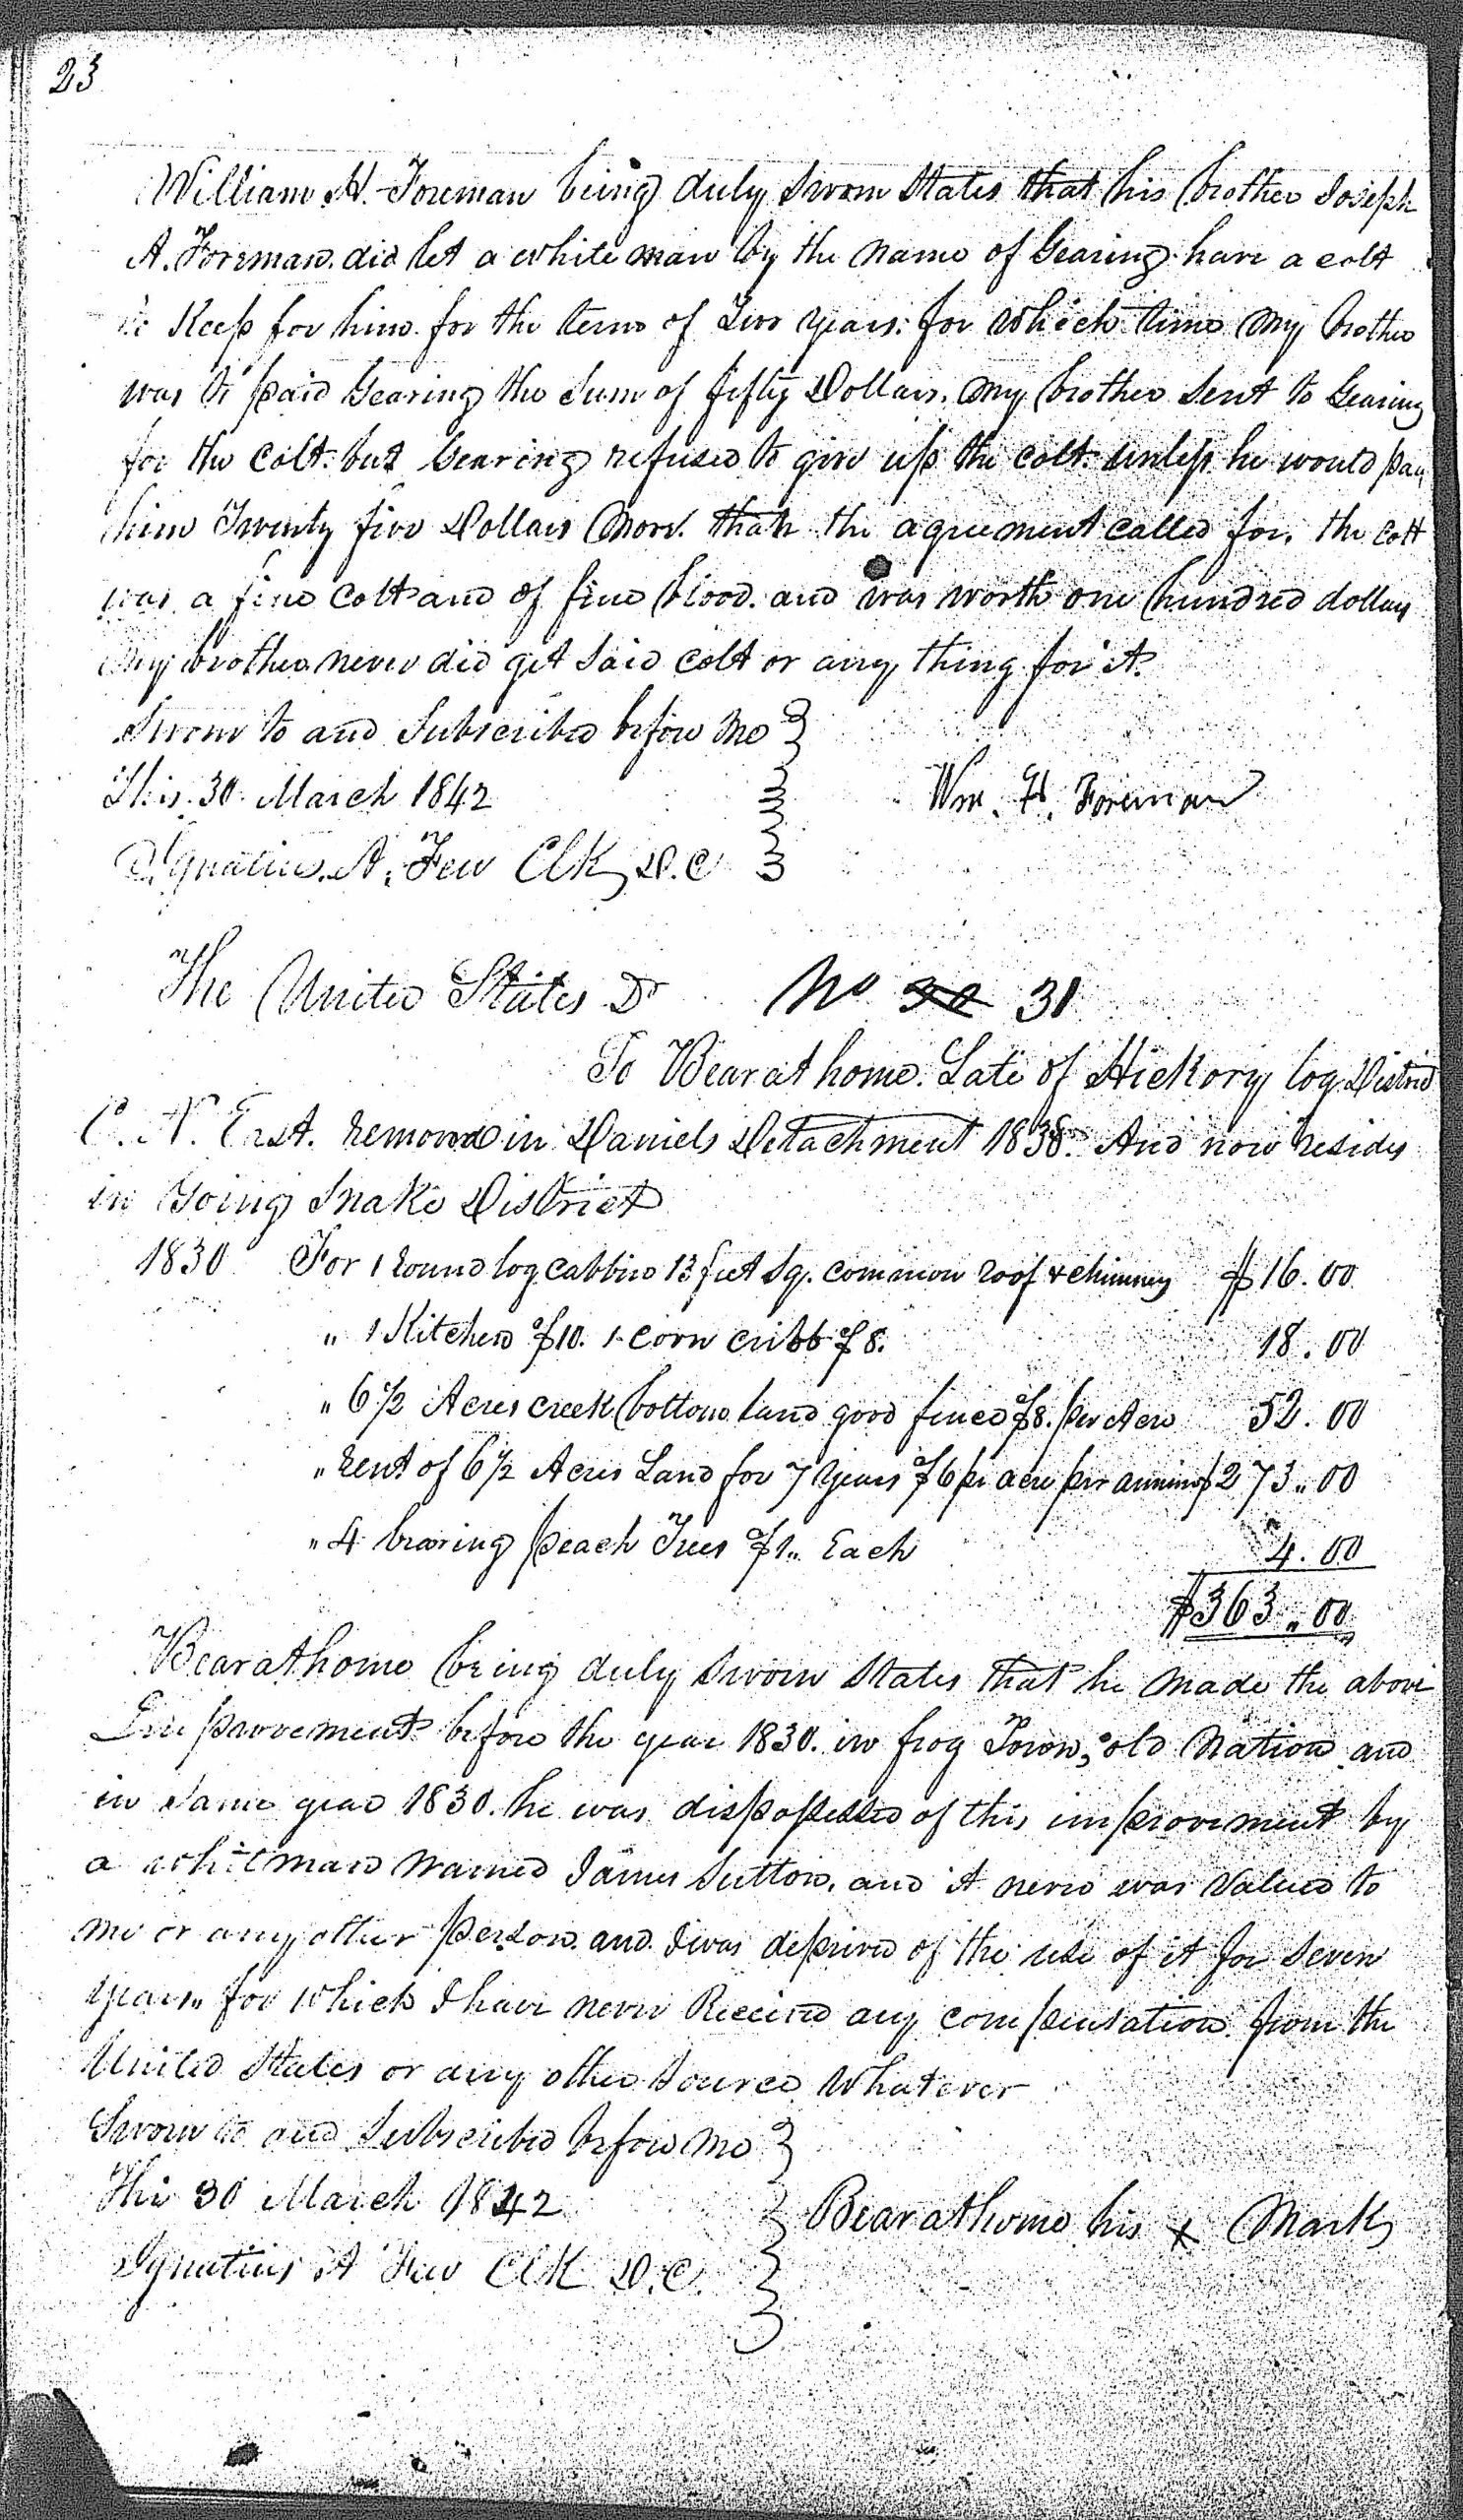 23
William H. Foreman being duly sworn States that his brother Joseph
A. Foreman did let a white man by the name of Gearing have a colt
to Keep for him for the term of Two years. for which time My brother
was to paid Gearing the Sum of fifty Dollars. My brother Sent to Gearing
for the Colt. but Gearing refused to give up the colt. unless he would pay
him Twenty five Dollars More. than the agreement called for. the colt
was a fine Colt and of fine blood. and was worth one hundred dollars
My brother never did get Said Colt or any thing for it.
Sworn to and Subscribed before Me
This. 30. March 1842
Ignatius. A. Few Clk, D.C
Wm. H. Foreman
The United States Dr No 30 31
To Bear at home. Late of Hickory log District
C. N. East. removed in Daniels Detachment 1838. And now resides
in Going Snake District
1830 For 1 round log cabbin 13 feet Sq. common roof & chimney $16.00
" 1 Kitchen $10. 1 corn cribb $8. 18.00
" 6 1/2 Acres creek bottom land good fence $8. per Acre 52.00
" rent of 6 1/2 Acres Land for 7 years $6 pr acre per annum $273.00
" 4 bearing peach Trees $1.. Each 4.00
$363.00
Bearathome being duly sworn States that he made the above
Improvement before the year 1830. in frog Town, old Nation and
in same year 1830. he was dispossessed of this improvement by
a whiteman named James Sutton. and it never was Valued to
me or any other person. and I was deprived of the use of it for Seven
years.. for which I have never Received any compensation from the
United States or any other Source Whatever
Sworn to and Subscribed before Me
This 30 March 1842
Ignatius A Few Clk D.C.
Bearathome his x Mark